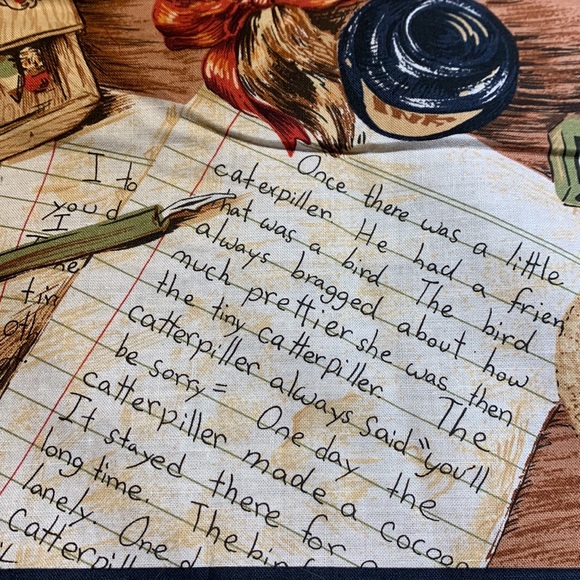 INK
Once there was a little
caterpiller. He had a frien
hat was a bird The bird
always bragged about how
much prettier she was then
the tiny catterpiller. The
catterpiller always said "you'll
be sorry= One day the
catterpiller made a cocoon
It stayed there for a
long time. The bir
lanely. One d
catterpill
I to
you d
I
he
tin
oth